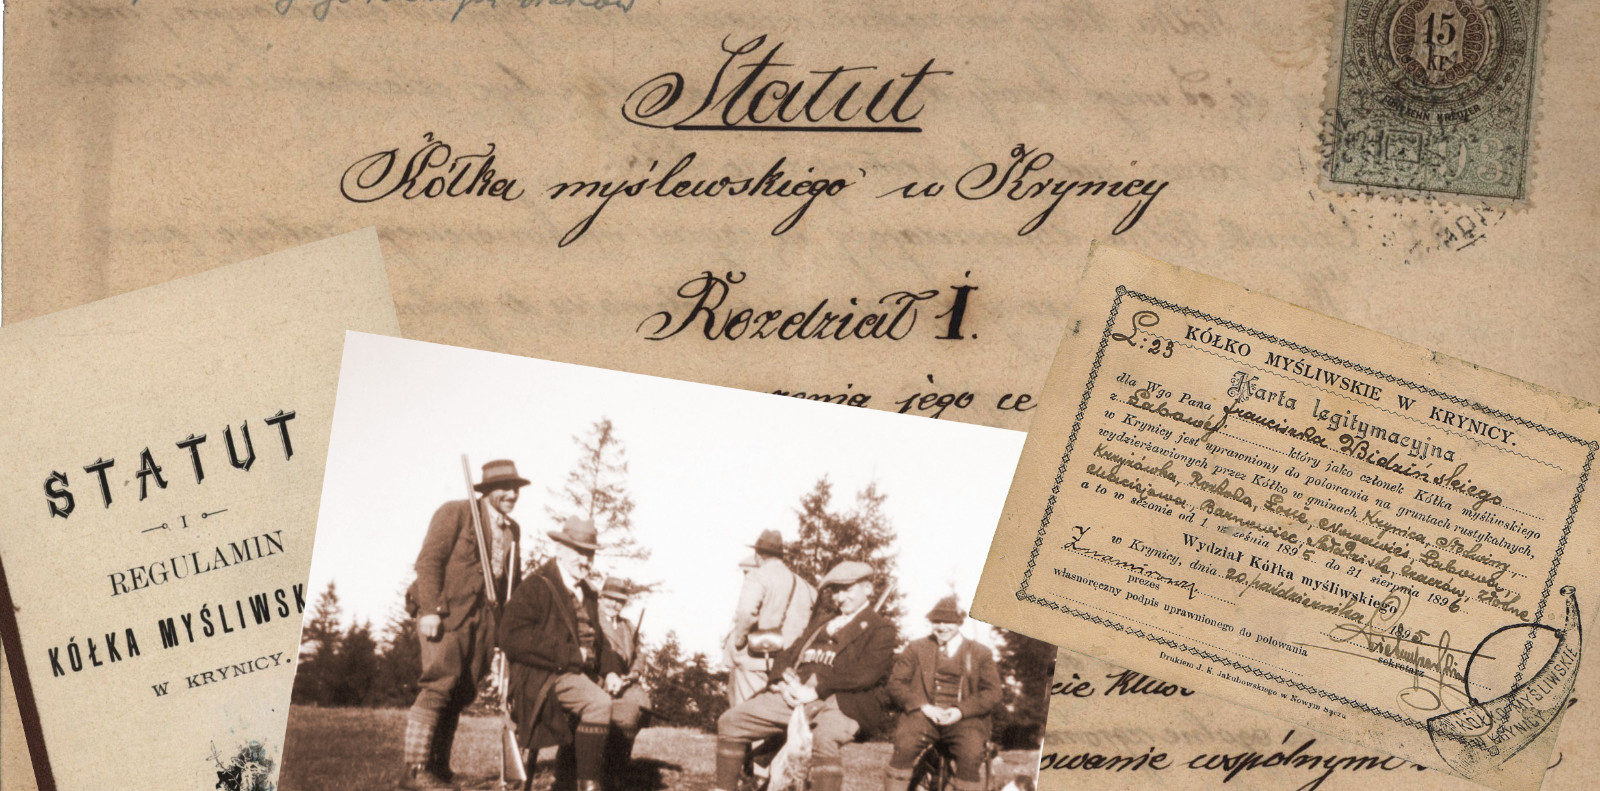 Statut
Kółka myślewskiego w Krynicy
Rozdział I.
jego ce
STATUT
I
REGULAMIN
KÓŁKA MYŚLIWSK
W KRYNICY.
15
KR
L: 23
KÓŁKO MYŚLIWSKIE W KRYNICY.
Karta legitymacyjna
dla Wgo Pana Franciszka Widzińskiego
z Łabowej który jako członek Kółka myśliwskiego
w Krynicy jest uprawniony do polowania na gruntach rustykalnych,
wydzierżawionych przez Kółko w gminach Krynica, Słotwiny,
Krzyżówka, Roztoka, Łosie, Nowawieś, Łabowa,
Maciejowa, Barnowiec, Składziste, Czaczów, Złotne
a to w sezonie od 1 września 1895 do 31 sierpnia 1896
Wydział Kółka myśliwskiego
w Krynicy, dnia 20 października 1895
prezes
sekretarz
własnoręczny podpis uprawnionego do polowania
Drukiem J. K. Jakubowskiego w Nowym Sączu
KÓŁKO MYŚLIWSKIE
W KRYNICY
owanie wspólnymi